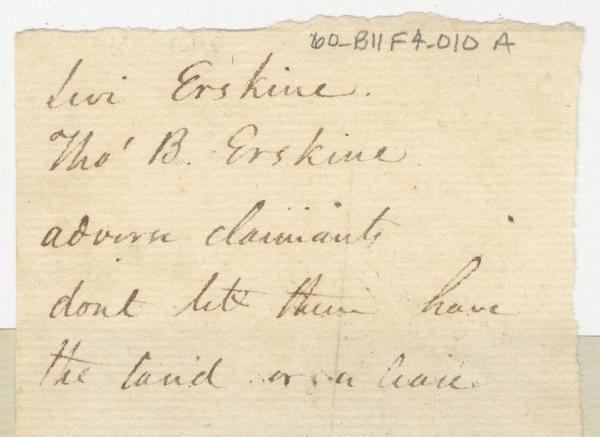 60-B11F4-010 A
Levi Erskine.
Tho' B. Erskine
adverse claimants
dont let them have
the land or a lease